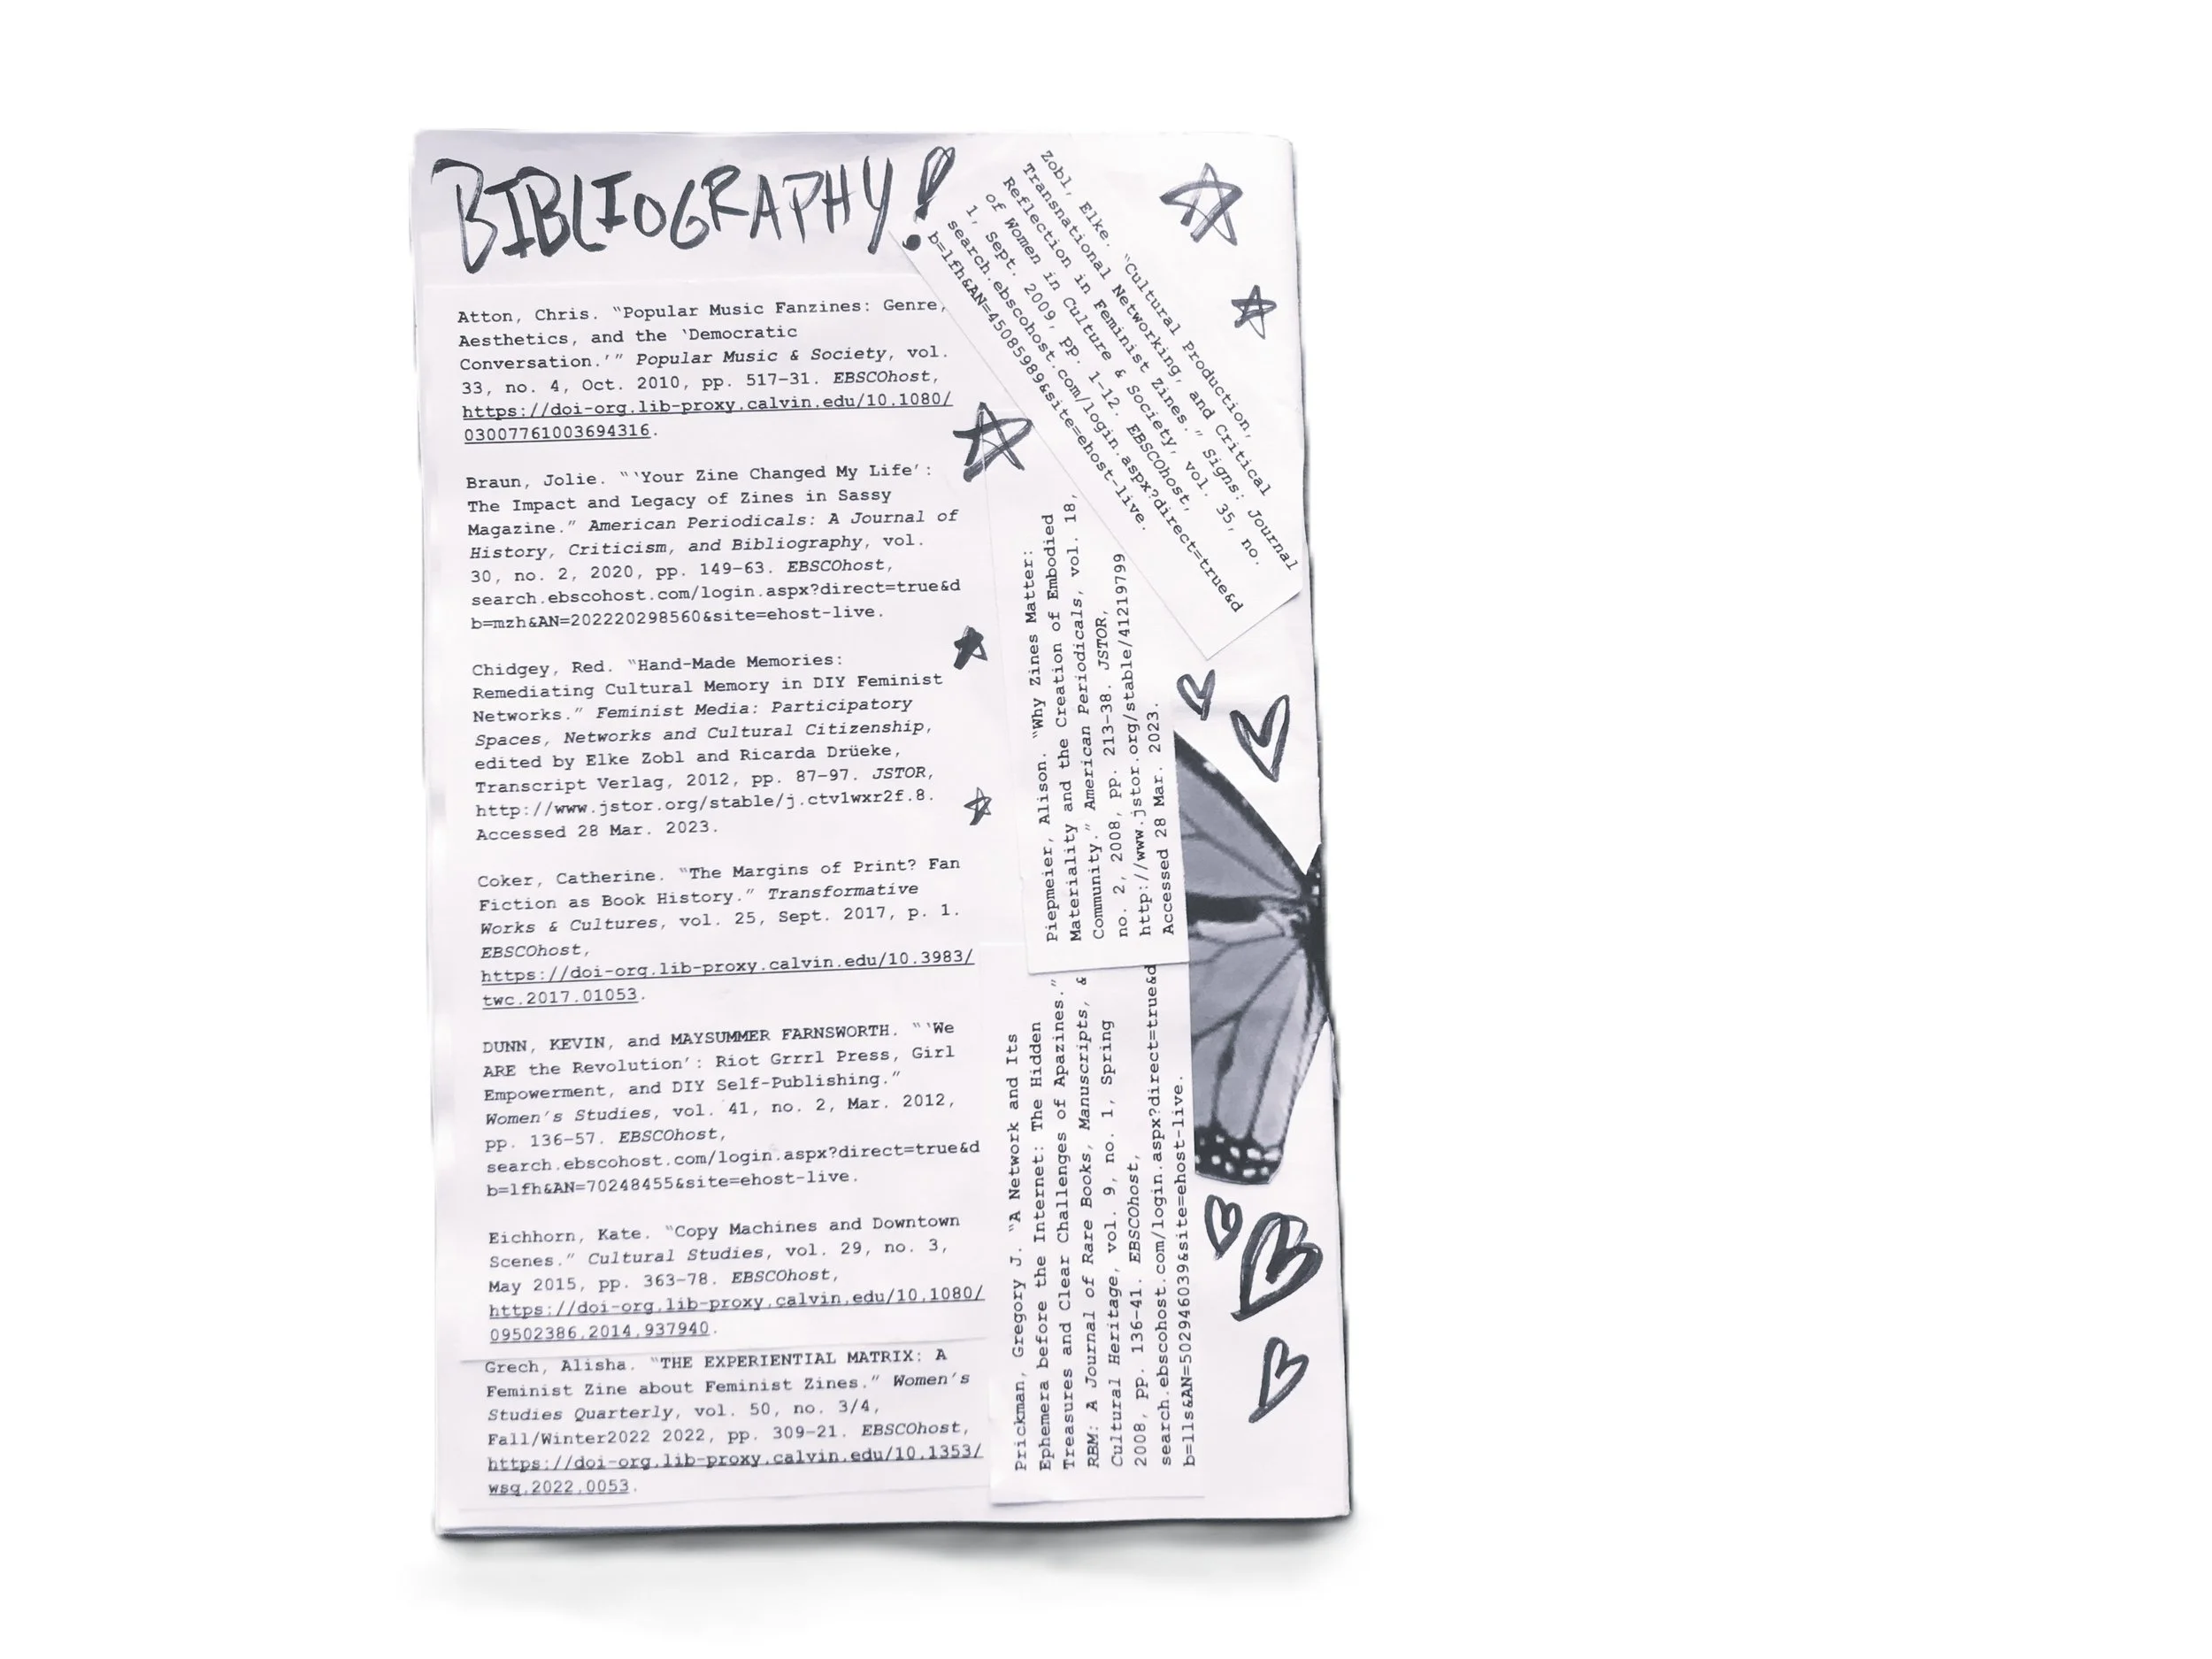 BIBLIOGRAPHY!
Atton, Chris. “Popular Music Fanzines: Genre,
Aesthetics, and the ‘Democratic
Conversation.’” Popular Music & Society, vol.
33, no. 4, Oct. 2010, pp. 517–31. EBSCOhost,
https://doi-org.lib-proxy.calvin.edu/10.1080/
03007761003694316.
Braun, Jolie. “‘Your Zine Changed My Life’:
The Impact and Legacy of Zines in Sassy
Magazine.” American Periodicals: A Journal of
History, Criticism, and Bibliography, vol.
30, no. 2, 2020, pp. 149–63. EBSCOhost,
search.ebscohost.com/login.aspx?direct=true&d
b=mzh&AN=202220298560&site=ehost-live.
Chidgey, Red. “Hand-Made Memories:
Remediating Cultural Memory in DIY Feminist
Networks.” Feminist Media: Participatory
Spaces, Networks and Cultural Citizenship,
edited by Elke Zobl and Ricarda Drüeke,
Transcript Verlag, 2012, pp. 87–97. JSTOR,
http://www.jstor.org/stable/j.ctv1wxr2f.8.
Accessed 28 Mar. 2023.
Coker, Catherine. “The Margins of Print? Fan
Fiction as Book History.” Transformative
Works & Cultures, vol. 25, Sept. 2017, p. 1.
EBSCOhost,
https://doi-org.lib-proxy.calvin.edu/10.3983/
twc.2017.01053.
DUNN, KEVIN, and MAYSUMMER FARNSWORTH. “‘We
ARE the Revolution’: Riot Grrrl Press, Girl
Empowerment, and DIY Self-Publishing.”
Women’s Studies, vol. 41, no. 2, Mar. 2012,
pp. 136–57. EBSCOhost,
search.ebscohost.com/login.aspx?direct=true&d
b=lfh&AN=70248455&site=ehost-live.
Eichhorn, Kate. “Copy Machines and Downtown
Scenes.” Cultural Studies, vol. 29, no. 3,
May 2015, pp. 363–78. EBSCOhost,
https://doi-org.lib-proxy.calvin.edu/10.1080/
09502386.2014.937940.
Grech, Alisha. “THE EXPERIENTIAL MATRIX: A
Feminist Zine about Feminist Zines.” Women’s
Studies Quarterly, vol. 50, no. 3/4,
Fall/Winter2022 2022, pp. 309–21. EBSCOhost,
https://doi-org.lib-proxy.calvin.edu/10.1353/
wsq.2022.0053.
Prickman, Gregory J. “A Network and Its
Ephemera before the Internet: The Hidden
Treasures and Clear Challenges of Apazines.”
RBM: A Journal of Rare Books, Manuscripts, &
Cultural Heritage, vol. 9, no. 1, Spring
2008, pp. 136–41. EBSCOhost,
search.ebscohost.com/login.aspx?direct=true&d
b=lls&AN=502946039&site=ehost-live.
Piepmeier, Alison. “Why Zines Matter:
Materiality and the Creation of Embodied
Community.” American Periodicals, vol. 18,
no. 2, 2008, pp. 213–38. JSTOR,
http://www.jstor.org/stable/41219799
Accessed 28 Mar. 2023.
Zobl, Elke. “Cultural Production,
Transnational Networking, and Critical
Reflection in Feminist Zines.” Signs: Journal
of Women in Culture & Society, vol. 35, no.
1, Sept. 2009, pp. 1–12. EBSCOhost,
search.ebscohost.com/login.aspx?direct=true&d
b=lfh&AN=45085989&site=ehost-live.